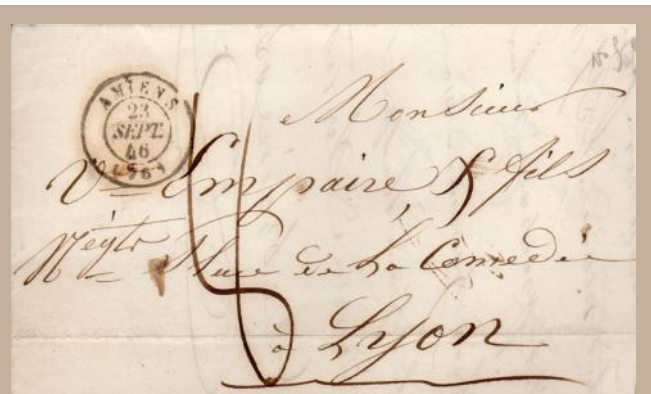 AMIENS
23
SEPT.
46
(76)
Monsieur
Ve Empaire & fils
Négts Place de la Comedie
à Lyon